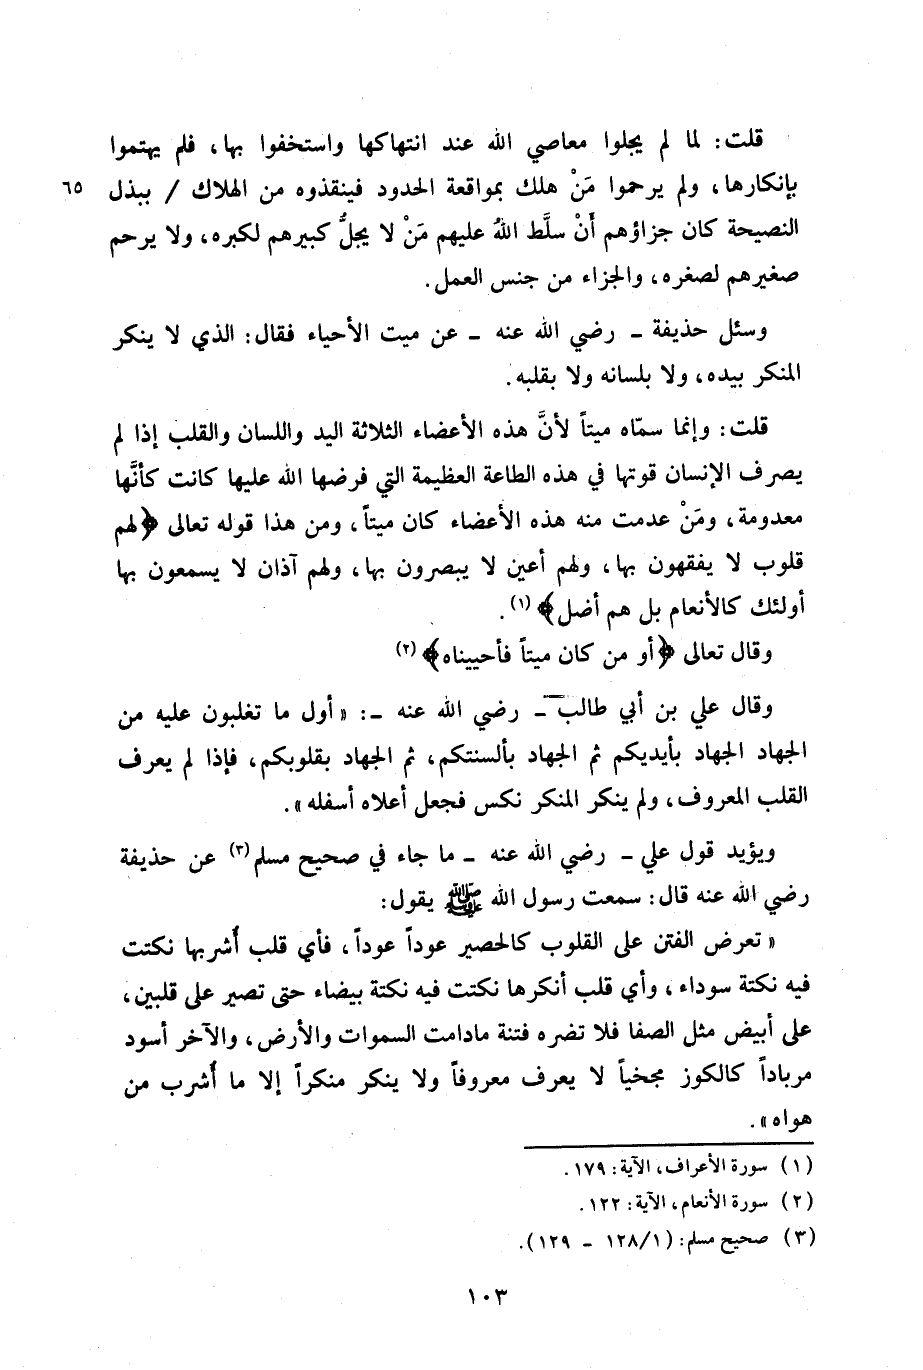 قلت: لما لم يجلوا معاصي الله عند انتهاكها واستخفوا بها، فلم يهتموا
بإنكارها، ولم يرحموا مَنْ هلك بمواقعة الحدود فينقذوه من الهلاك / ببذل ٦٥
النصيحة كان جزاؤهم أَنْ سلَّط اللهُ عليهم مَنْ لا يجلُّ كبيرهم لكبره، ولا يرحم
صغيرهم لصغره، والجزاء من جنس العمل.
وسئل حذيفة - رضي الله عنه - عن ميت الأحياء فقال: الذي لا ينكر
المنكر بيده، ولا بلسانه ولا بقلبه.
قلت: وإنما سمّاه ميتاً لأنَّ هذه الأعضاء الثلاثة اليد واللسان والقلب إذا لم
يصرف الإنسان قوتها في هذه الطاعة العظيمة التي فرضها الله عليها كانت كأنَّها
معدومة، ومَنْ عدمت منه هذه الأعضاء كان ميتاً، ومن هذا قوله تعالى ﴿لهم
قلوب لا يفقهون بها، ولهم أعين لا يبصرون بها، ولهم آذان لا يسمعون بها
أولئك كالأنعام بل هم أضل﴾ (١).
وقال تعالى ﴿أو من كان ميتاً فأحييناه﴾ (٢)
وقال علي بن أبي طالب - رضي الله عنه -: «أول ما تغلبون عليه من
الجهاد الجهاد بأيديكم ثم الجهاد بألسنتكم، ثم الجهاد بقلوبكم، فإذا لم يعرف
القلب المعروف، ولم ينكر المنكر نكس فجعل أعلاه أسفله».
ويؤيد قول علي - رضي الله عنه - ما جاء في صحيح مسلم (٣) عن حذيفة
رضي الله عنه قال: سمعت رسول الله ﷺ يقول:
«تعرض الفتن على القلوب كالحصير عوداً عوداً، فأي قلب أُشربها نكتت
فيه نكتة سوداء، وأي قلب أنكرها نكتت فيه نكتة بيضاء حتى تصير على قلبين،
على أبيض مثل الصفا فلا تضره فتنة مادامت السموات والأرض، والآخر أسود
مرباداً كالكوز مجخياً لا يعرف معروفاً ولا ينكر منكراً إلا ما أُشرب من
هواه».
(١) سورة الأعراف، الآية: ١٧٩.
(٢) سورة الأنعام، الآية: ١٢٢.
(٣) صحيح مسلم: (١/١٢٨ - ١٢٩).
١٠٣